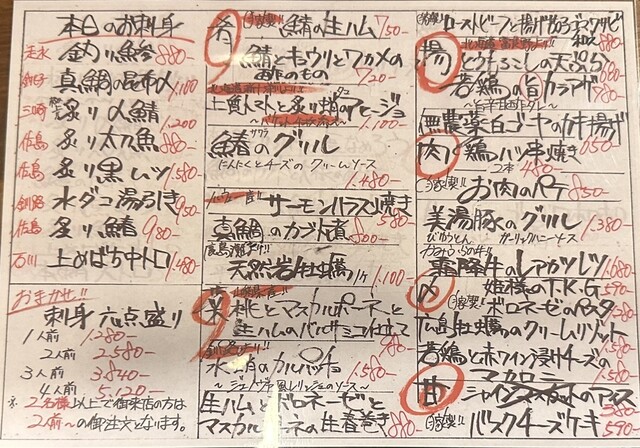 本日のお刺身
釣り鯵 880-
銚子 真鯛の昆布〆 1,100
炙り〆鯖 1,200
佐島 炙り太刀魚 880-
佐島 炙り黒ムツ 1,580-
釧路 水ダコ湯引き 950-
佐島 炙り鯖 980-
石川 上めばち中トロ 1,480
おまかせ!!
刺身 六点盛り
1人前 1,280-
2人前 2,580-
3人前 3,840-
4人前 5,120-
※2名様以上で御来店の方は
2人前〜の御注文となります。
肴
自家製!! 鯖の生ハム 750-
鯖とキュウリとワカメの
酢のもの 720-
上質トマトと炙り蛸のアヒージョ
1,100-
鯖のグリル
にんにくとチーズのクリームソース
1,480-
サーモンハラス炙り焼き
580-
真鯛のカブト煮 800-
天然岩牡蠣 1ヶ 1,100-
桃とマスカルポーネと
生ハムのバルサミコ仕立て
水ダコのカルパッチョ
1,580-
生ハムとボロネーゼと
マスカルポーネの生春巻き 880-
揚
自家製!! ローストビーフ
とうもろこしの天ぷら 680
若鶏の旨カラアゲ 780
無農薬白ゴーヤの肉揚げ
650-
肉
鶏ハツ串焼き
2本 480-
自家製!! お肉のパテ 850-
美湯豚のグリル 1,380-
びゆうとん ガーリックハニーソース
霜降牛のレアカツレツ 1,680
〆
姫様のT.K.G 570
自家製!! ボロネーゼのパスタ
広島牡蠣のクリームリゾット 1,580
若鶏と赤ワイン浸けチーズの
マカロニ 1,580
甘
シャインマスカットのアイス
580
自家製!! バスクチーズケーキ 590-